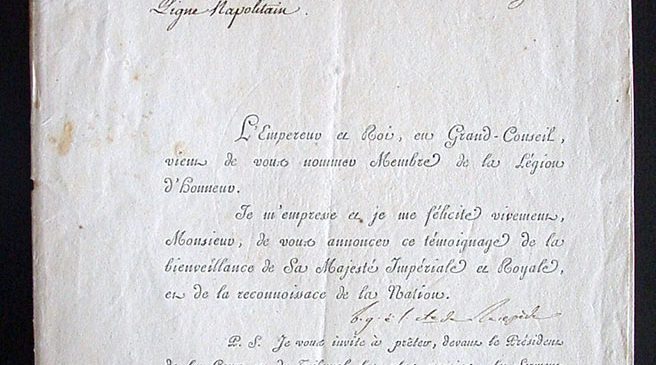 Ligne Napolitain.
L'Empereur et Roi, en Grand-Conseil,
vient de vous nommer Membre de la Légion
d'Honneur.
Je m'emprese et je me félicite vivement,
Monsieur, de vous annoncer ce témoignage de la
bienveillance de Sa Majesté Impériale et Royale,
et de la reconnoissace de la Nation.
P. S. Je vous invite à prêter, devant le Président